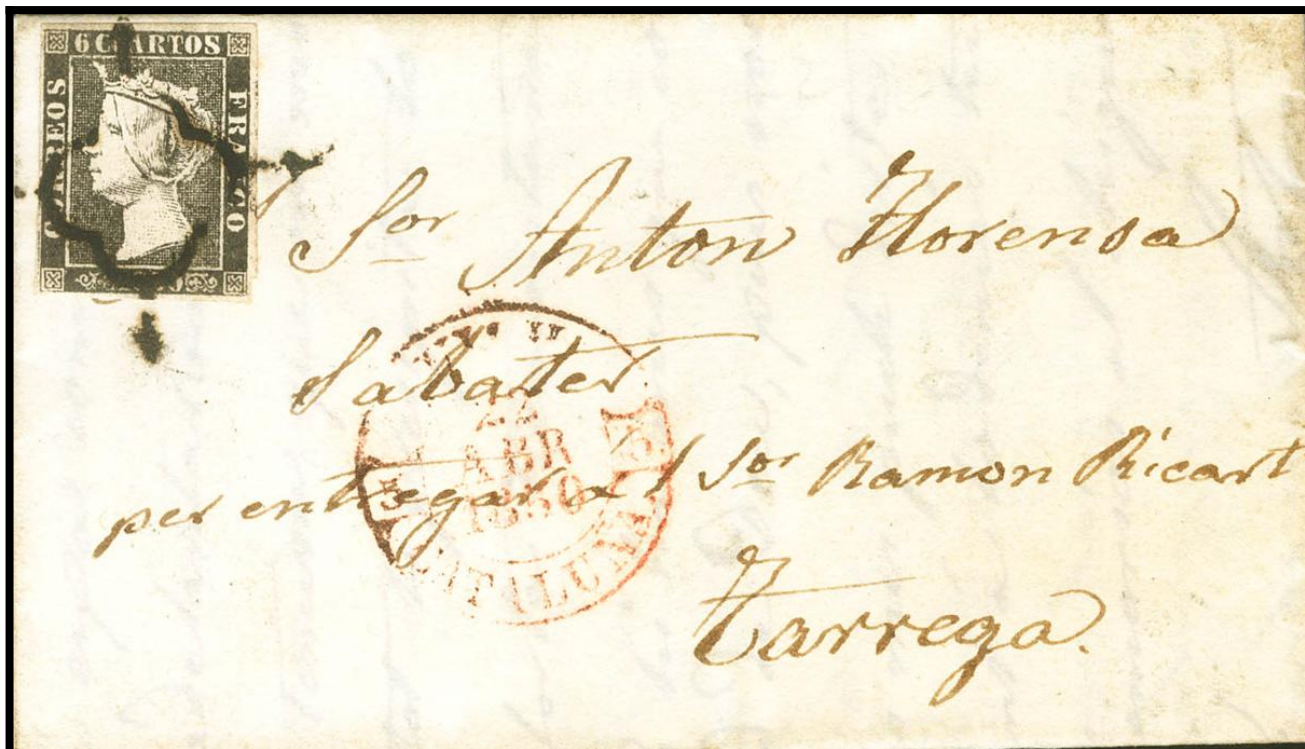 6 CUARTOS
CORREOS
FRANCO
Sor Anton Florensa
Sabater
22
ABR
1850
CATALUÑA
per entregar a Sor Ramon Ricart
Tarrega.